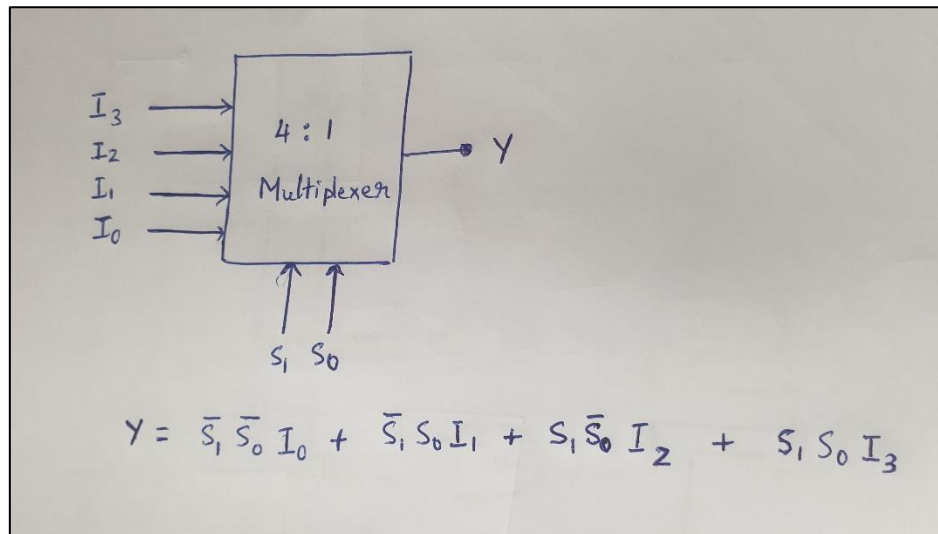 I₃
4 : 1
I₂
Y
I₁
Multiplexer
I₀
S₁ S₀
Y = S̅₁ S̅₀ I₀ + S̅₁ S₀ I₁ + S₁ S̅₀ I₂ + S₁ S₀ I₃